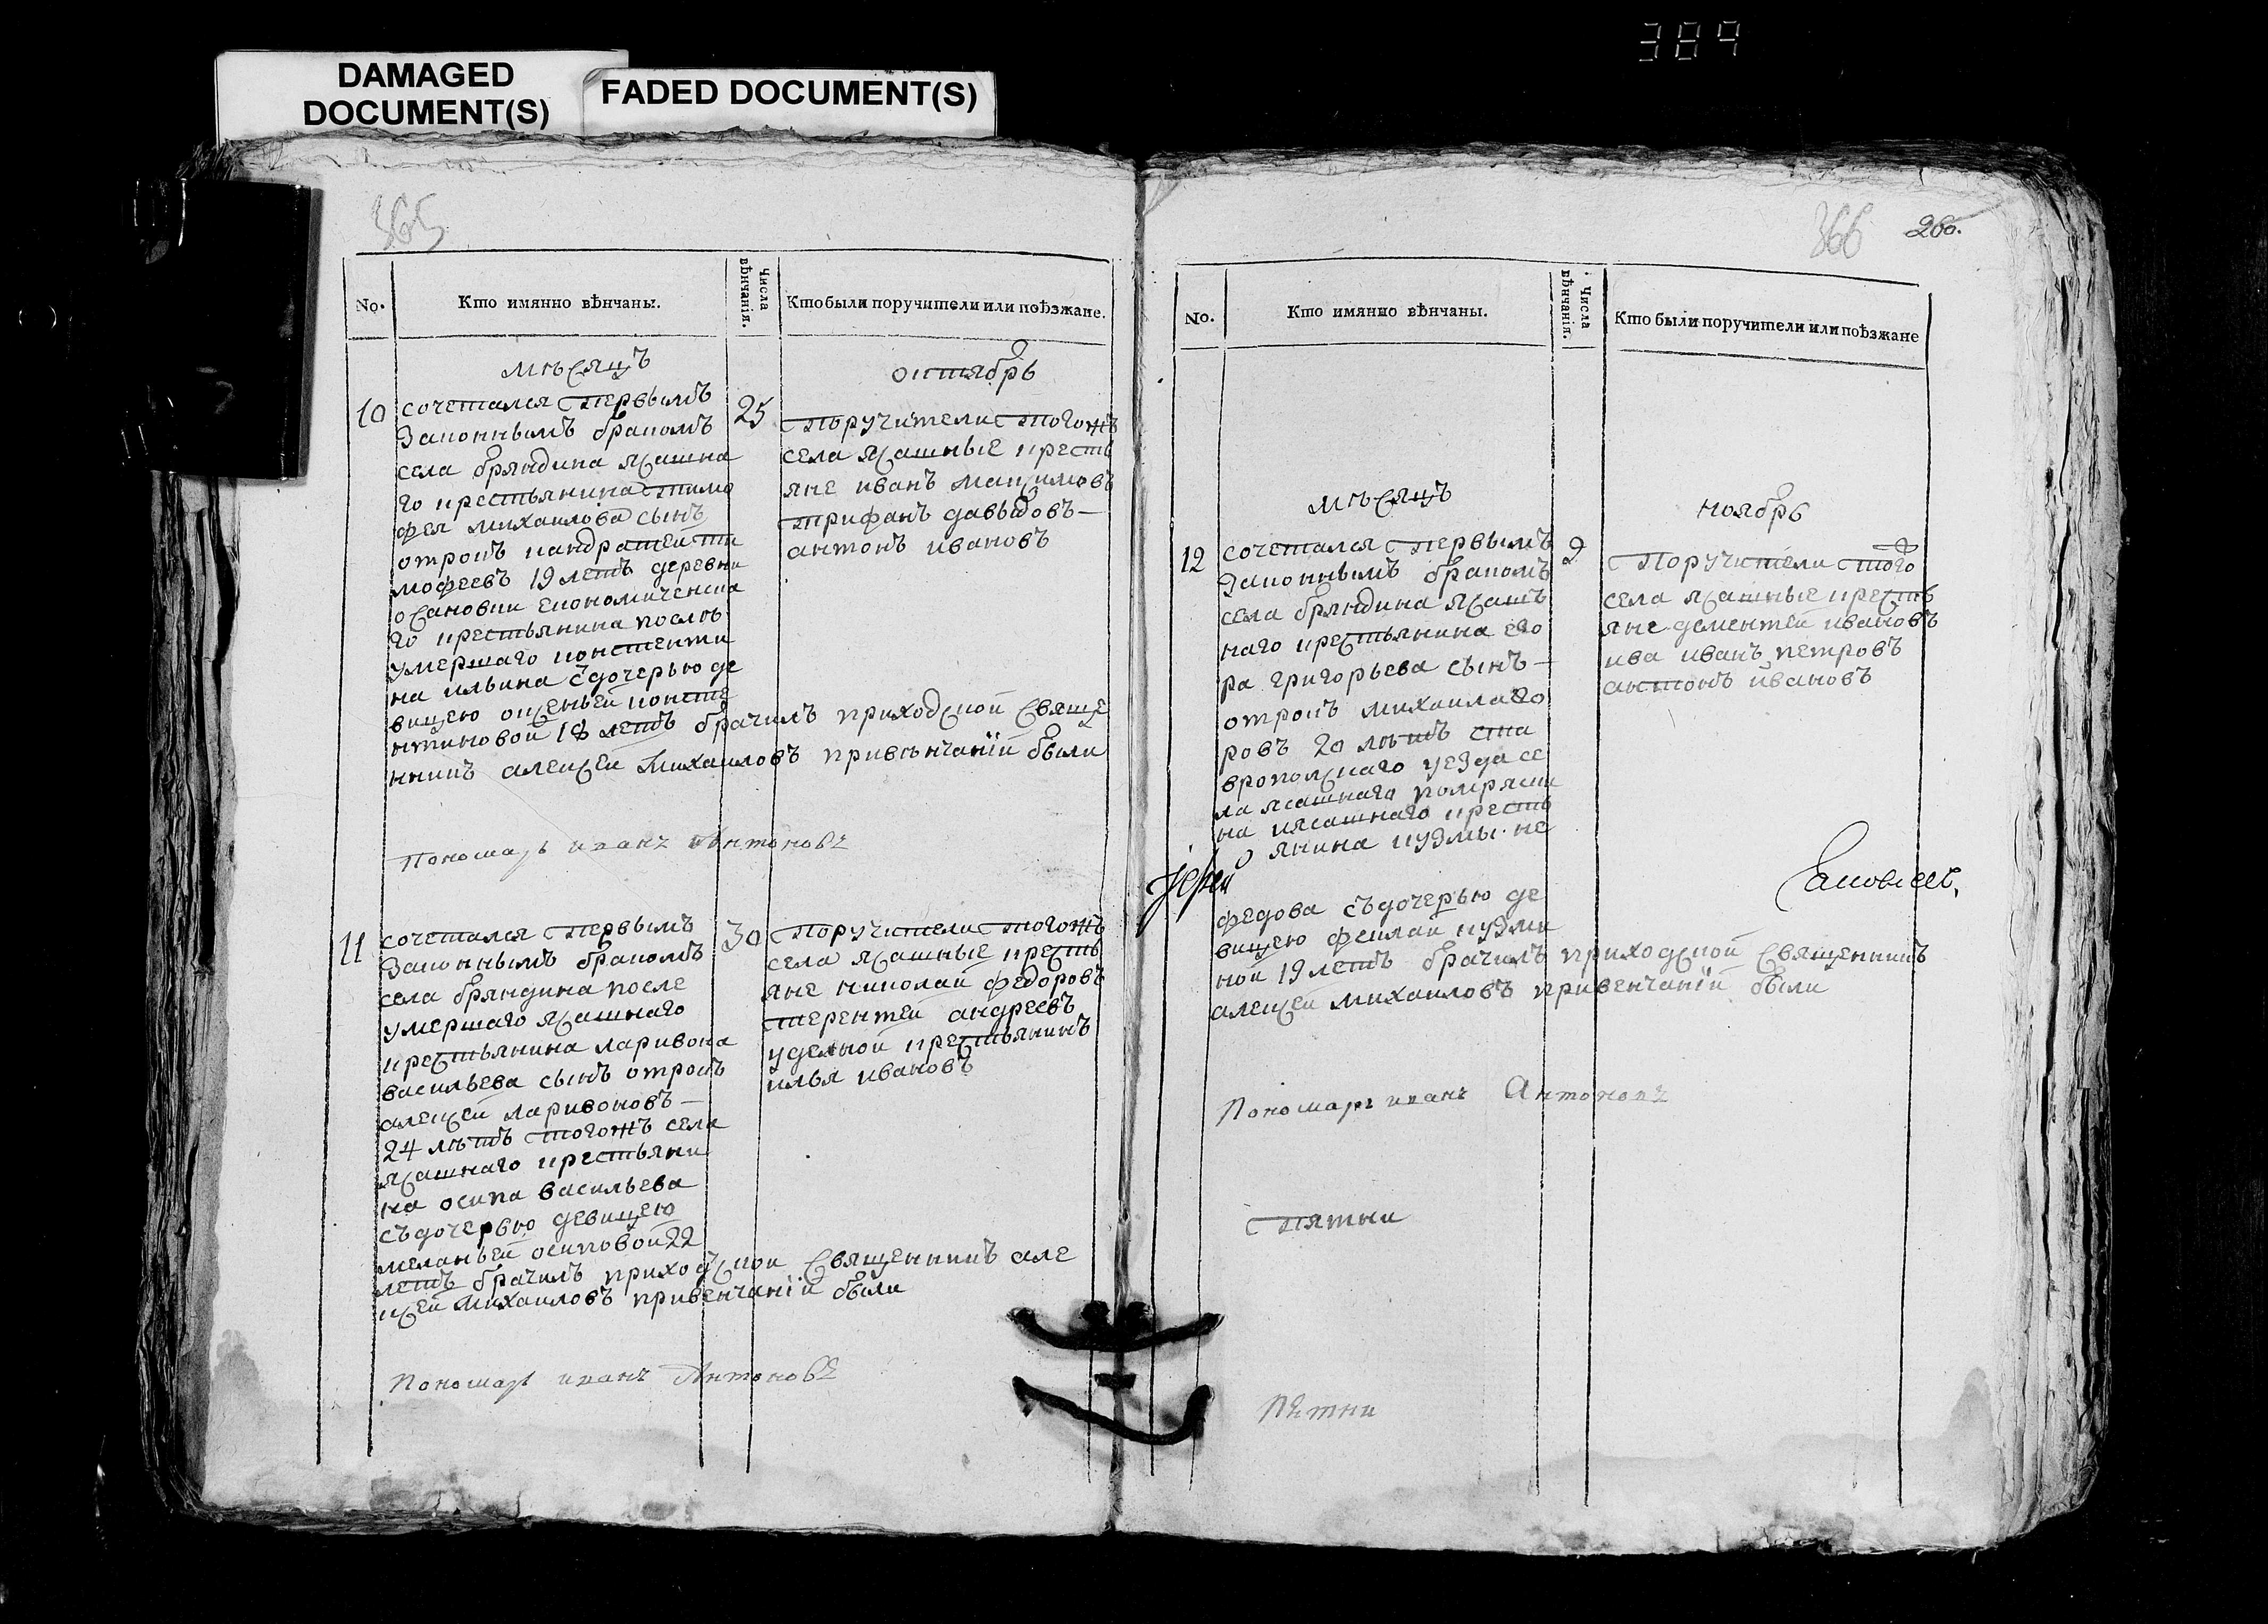 389
DAMAGED
DOCUMENT(S)
FADED DOCUMENT(S)
365
No.
Кто имянно вѣнчаны.
Числа вѣнчанія.
Кто были поручители или поѣзжане.
мѣсяцъ
октябрь
10
сочетался первымъ
законнымъ бракомъ
села бряндина ясашна
го крестьянина тимо
фея михаилова сынъ
отрокъ кандратеи ти
мофеевъ 19 летъ деревни
осановки економическа
го крестьянина послѣ
умершаго констенти
на ильина съдочерью де
вицею оксеньей консте
нтиновой 18 летъ брачилъ приходской свяще
нникъ алексей Михаиловъ привѣнчаніи были
25
Поручители тогожъ
села ясашные кресть
яне иванъ максимовъ
трифанъ давыдовъ
антонъ ивановъ
Пономарь иванъ Антоновъ
11
сочетался первымъ
законнымъ бракомъ
села бряндина после
умершаго ясашнаго
крестьянина ларивона
васильева сынъ отрокъ
алексей ларивоновъ
24 лѣтъ тогожъ села
ясашнаго крестьяни
на осипа васильева
съдочерью девицею
меланьей осиповой 22
летъ брачилъ приходской священникъ але
ксей Михаиловъ привенчаніи были
30
Поручители тогожъ
села ясашные кресть
яне николаи федоровъ
терентеи андреевъ
уделной крестьянинъ
илья ивановъ
Пономарь иванъ Антоновъ
366
260.
No.
Кто имянно вѣнчаны.
Числа вѣнчанія.
Кто были поручители или поѣзжане
мѣсяцъ
ноябрь
12
сочетался первымъ
законнымъ бракомъ
села бряндина ясаш
наго крестьянина его
ра григорьева сынъ
отрокъ михаила его
ровъ 20 лѣтъ ста
вропольскаго уезда се
ла ясашнаго помряски
на ясашнаго кресть
янина кузмы не
федова съдочерью де
вицею феклай кузми
ной 19 летъ брачилъ приходской священникъ
алексеи михаиловъ привенчаніи были
9
Поручители того
села ясашные кресть
яне дементеи ивановъ
ива иванъ петровъ
антонъ ивановъ
Іерей
Яковлевъ.
Пономарь иванъ Антоновъ
Пятни
Пятни